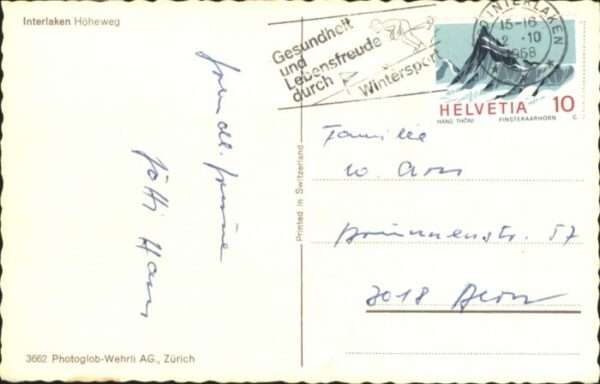 Interlaken Höheweg
freundl. Grüsse
Götti Hans
Printed in Switzerland
3662 Photoglob-Wehrli AG., Zürich
Gesundheit
und
Lebensfreude
durch
Wintersport
INTERLAKEN
15-16
2.-10
1968
HELVETIA 10
HANS THÖNI FINSTERAARHORN C
Familie
W.
Brunnenstr. 57
3018 Bern